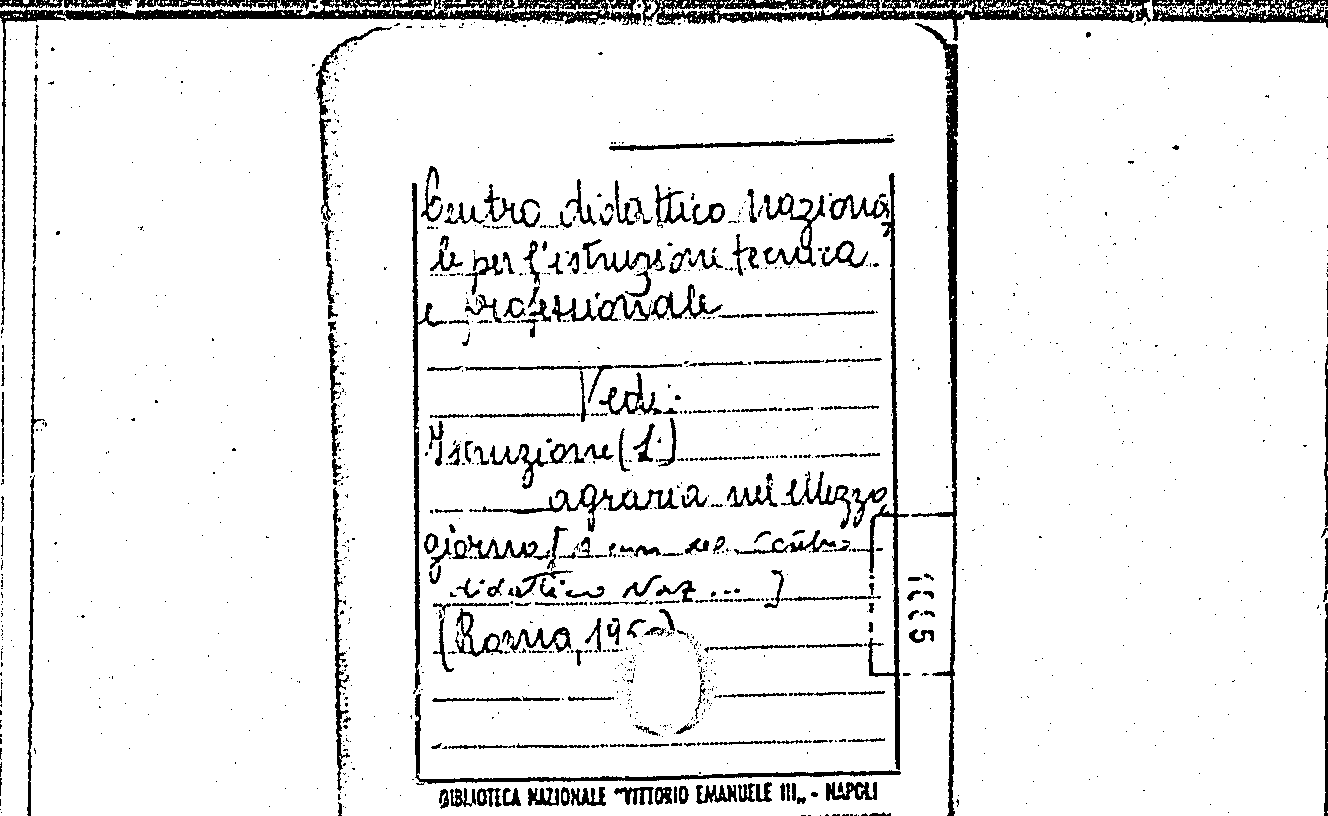 Centro didattico naziona
le per l'istruzione tecnica
e professionale
Vedi:
Istruzione (L')
agraria nel Mezzo
giorno [a cura del Centro
didattico Naz ... ]
(Roma,
BIBLIOTECA NAZIONALE "VITTORIO EMANUELE III„ - NAPOLI